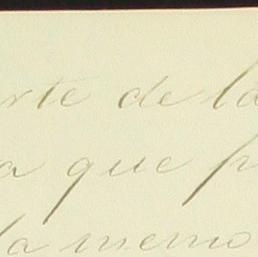 rte de la
a que p
la memo